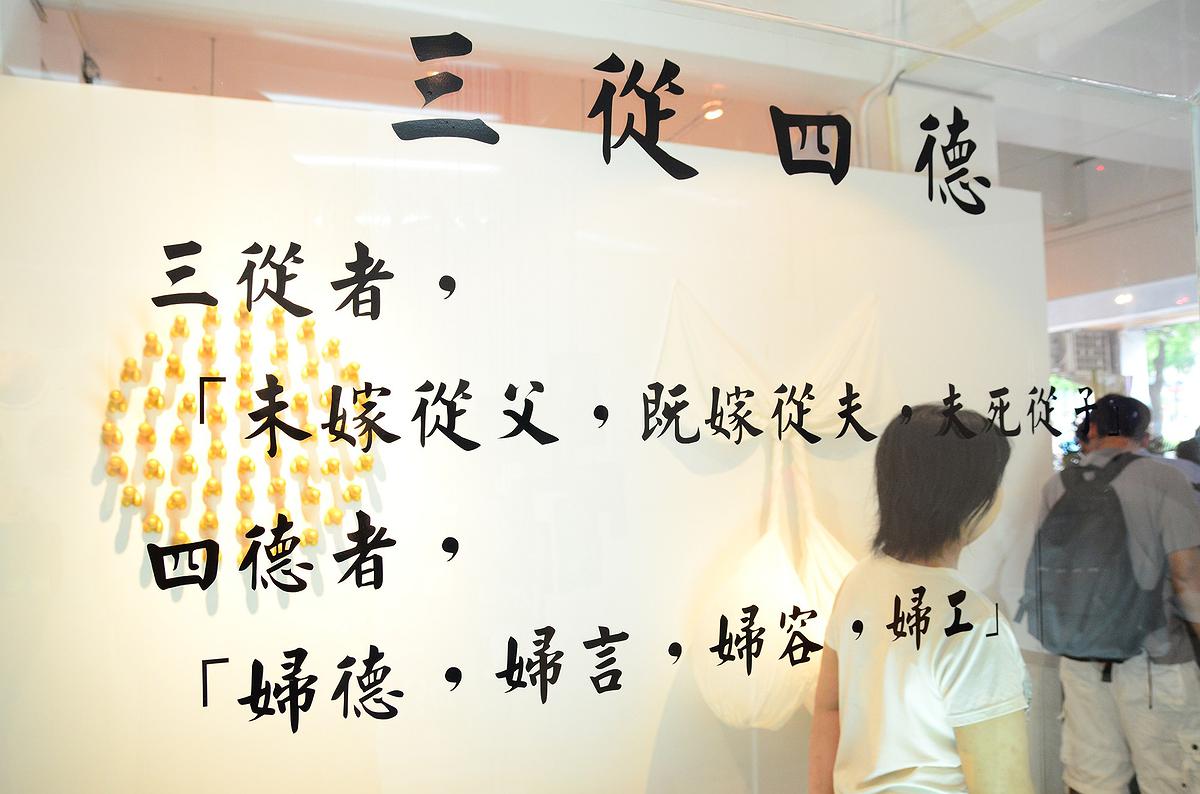 三從四德
三從者，
「未嫁從父，既嫁從夫，夫死從子」
四德者，
「婦德，婦言，婦容，婦工」